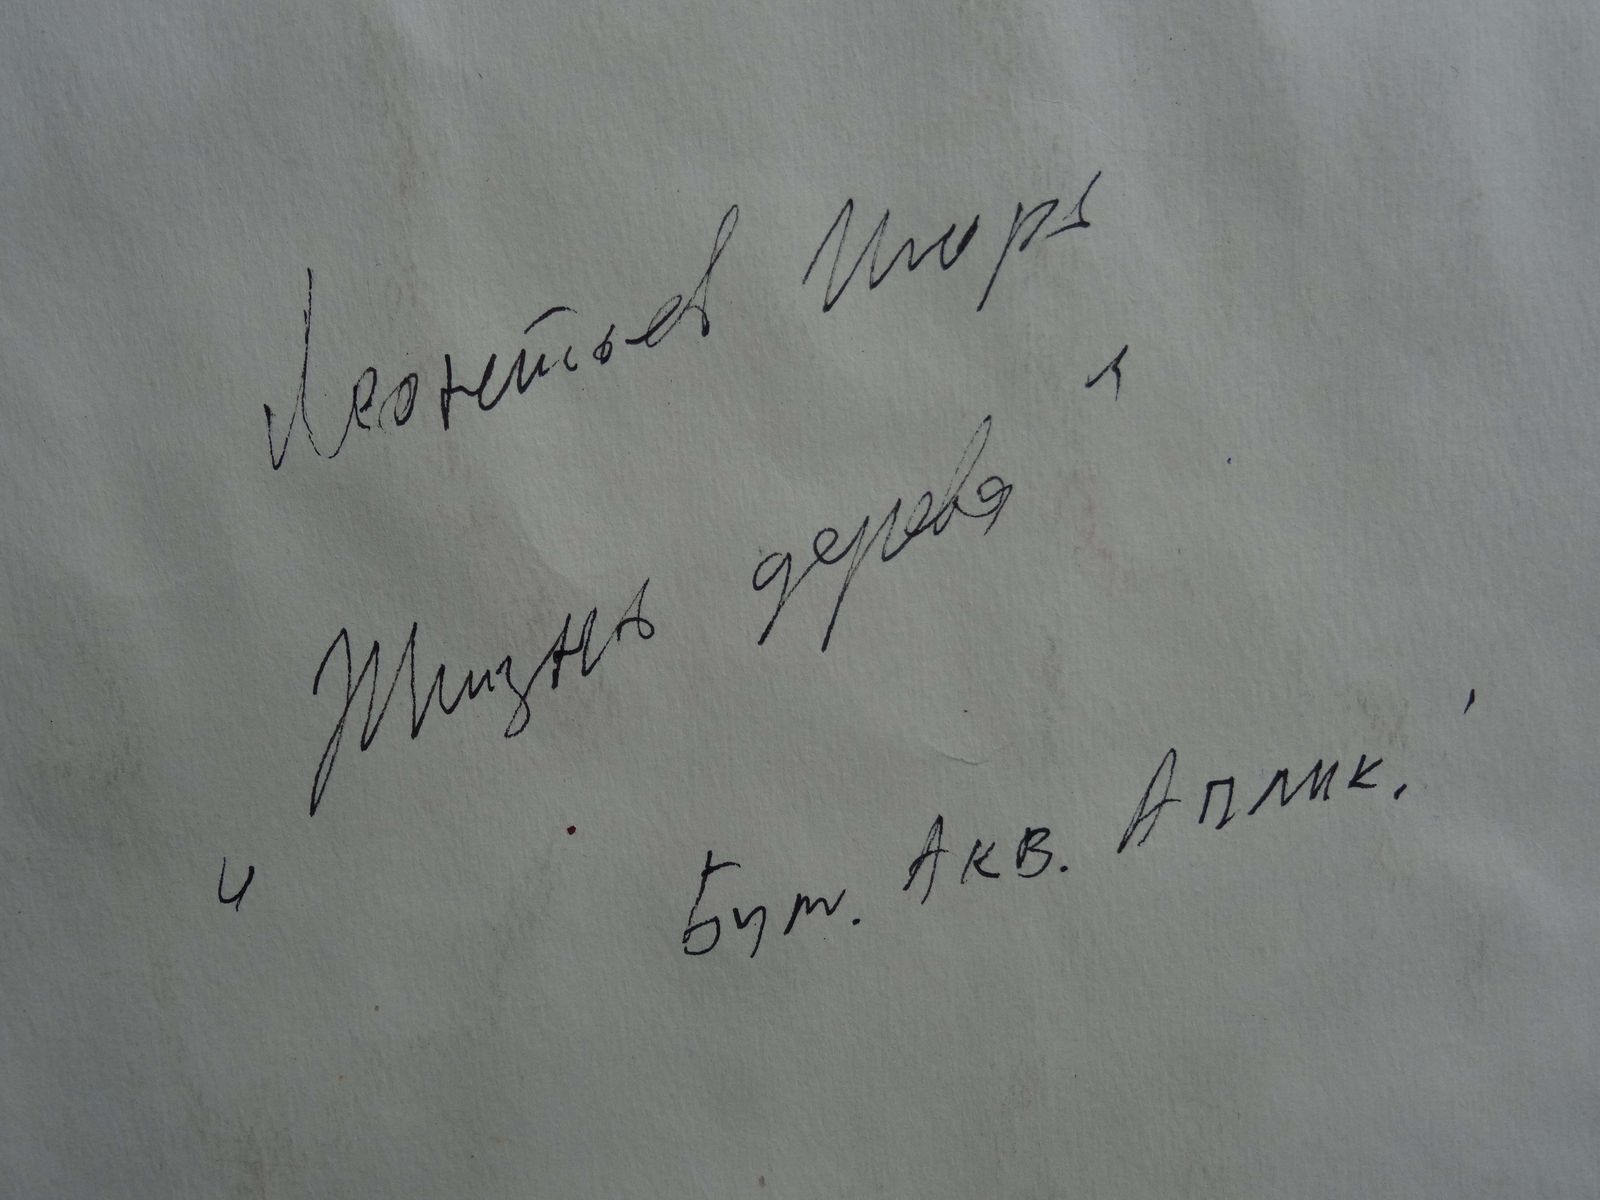 Леонтьев Игорь
„Жизнь дерева“
Бум. Акв. Аплик.